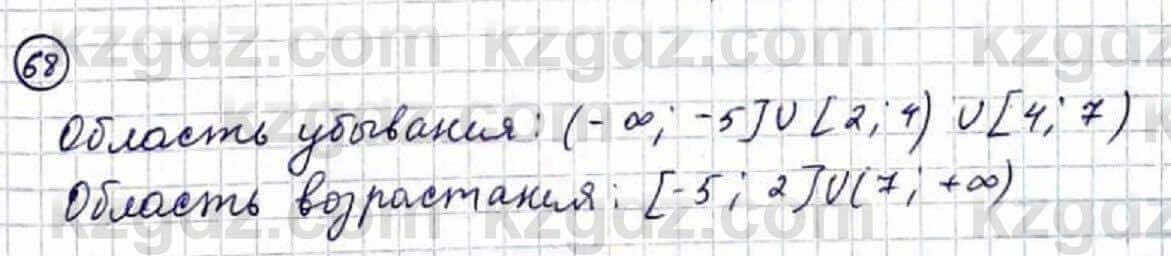 kzgdz.com kzgdz.com kzgdz
68
Область убывания: (-∞; -5]∪[2; 4) ∪[4; 7)
Область возрастания: [-5; 2]∪(7; +∞)
kzgdz.com kzgdz.com kzgdz